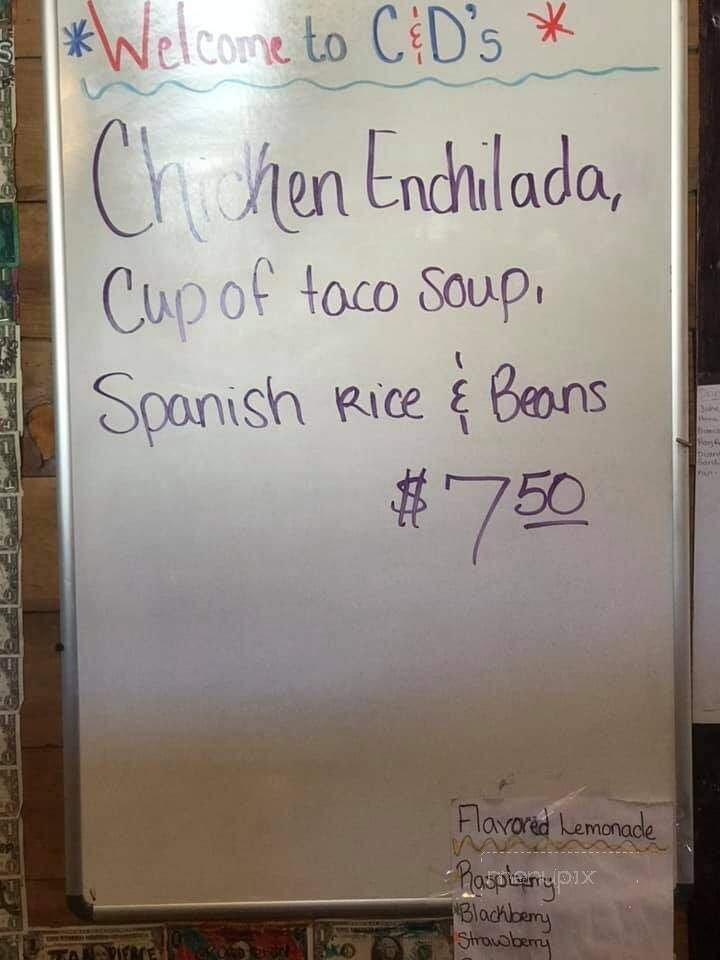 *Welcome to C&D's *
Chicken Enchilada,
Cup of taco soup,
Spanish Rice & Beans
$7 50
Flavored Lemonade
Raspberry
menupix
Blackberry
Strawberry